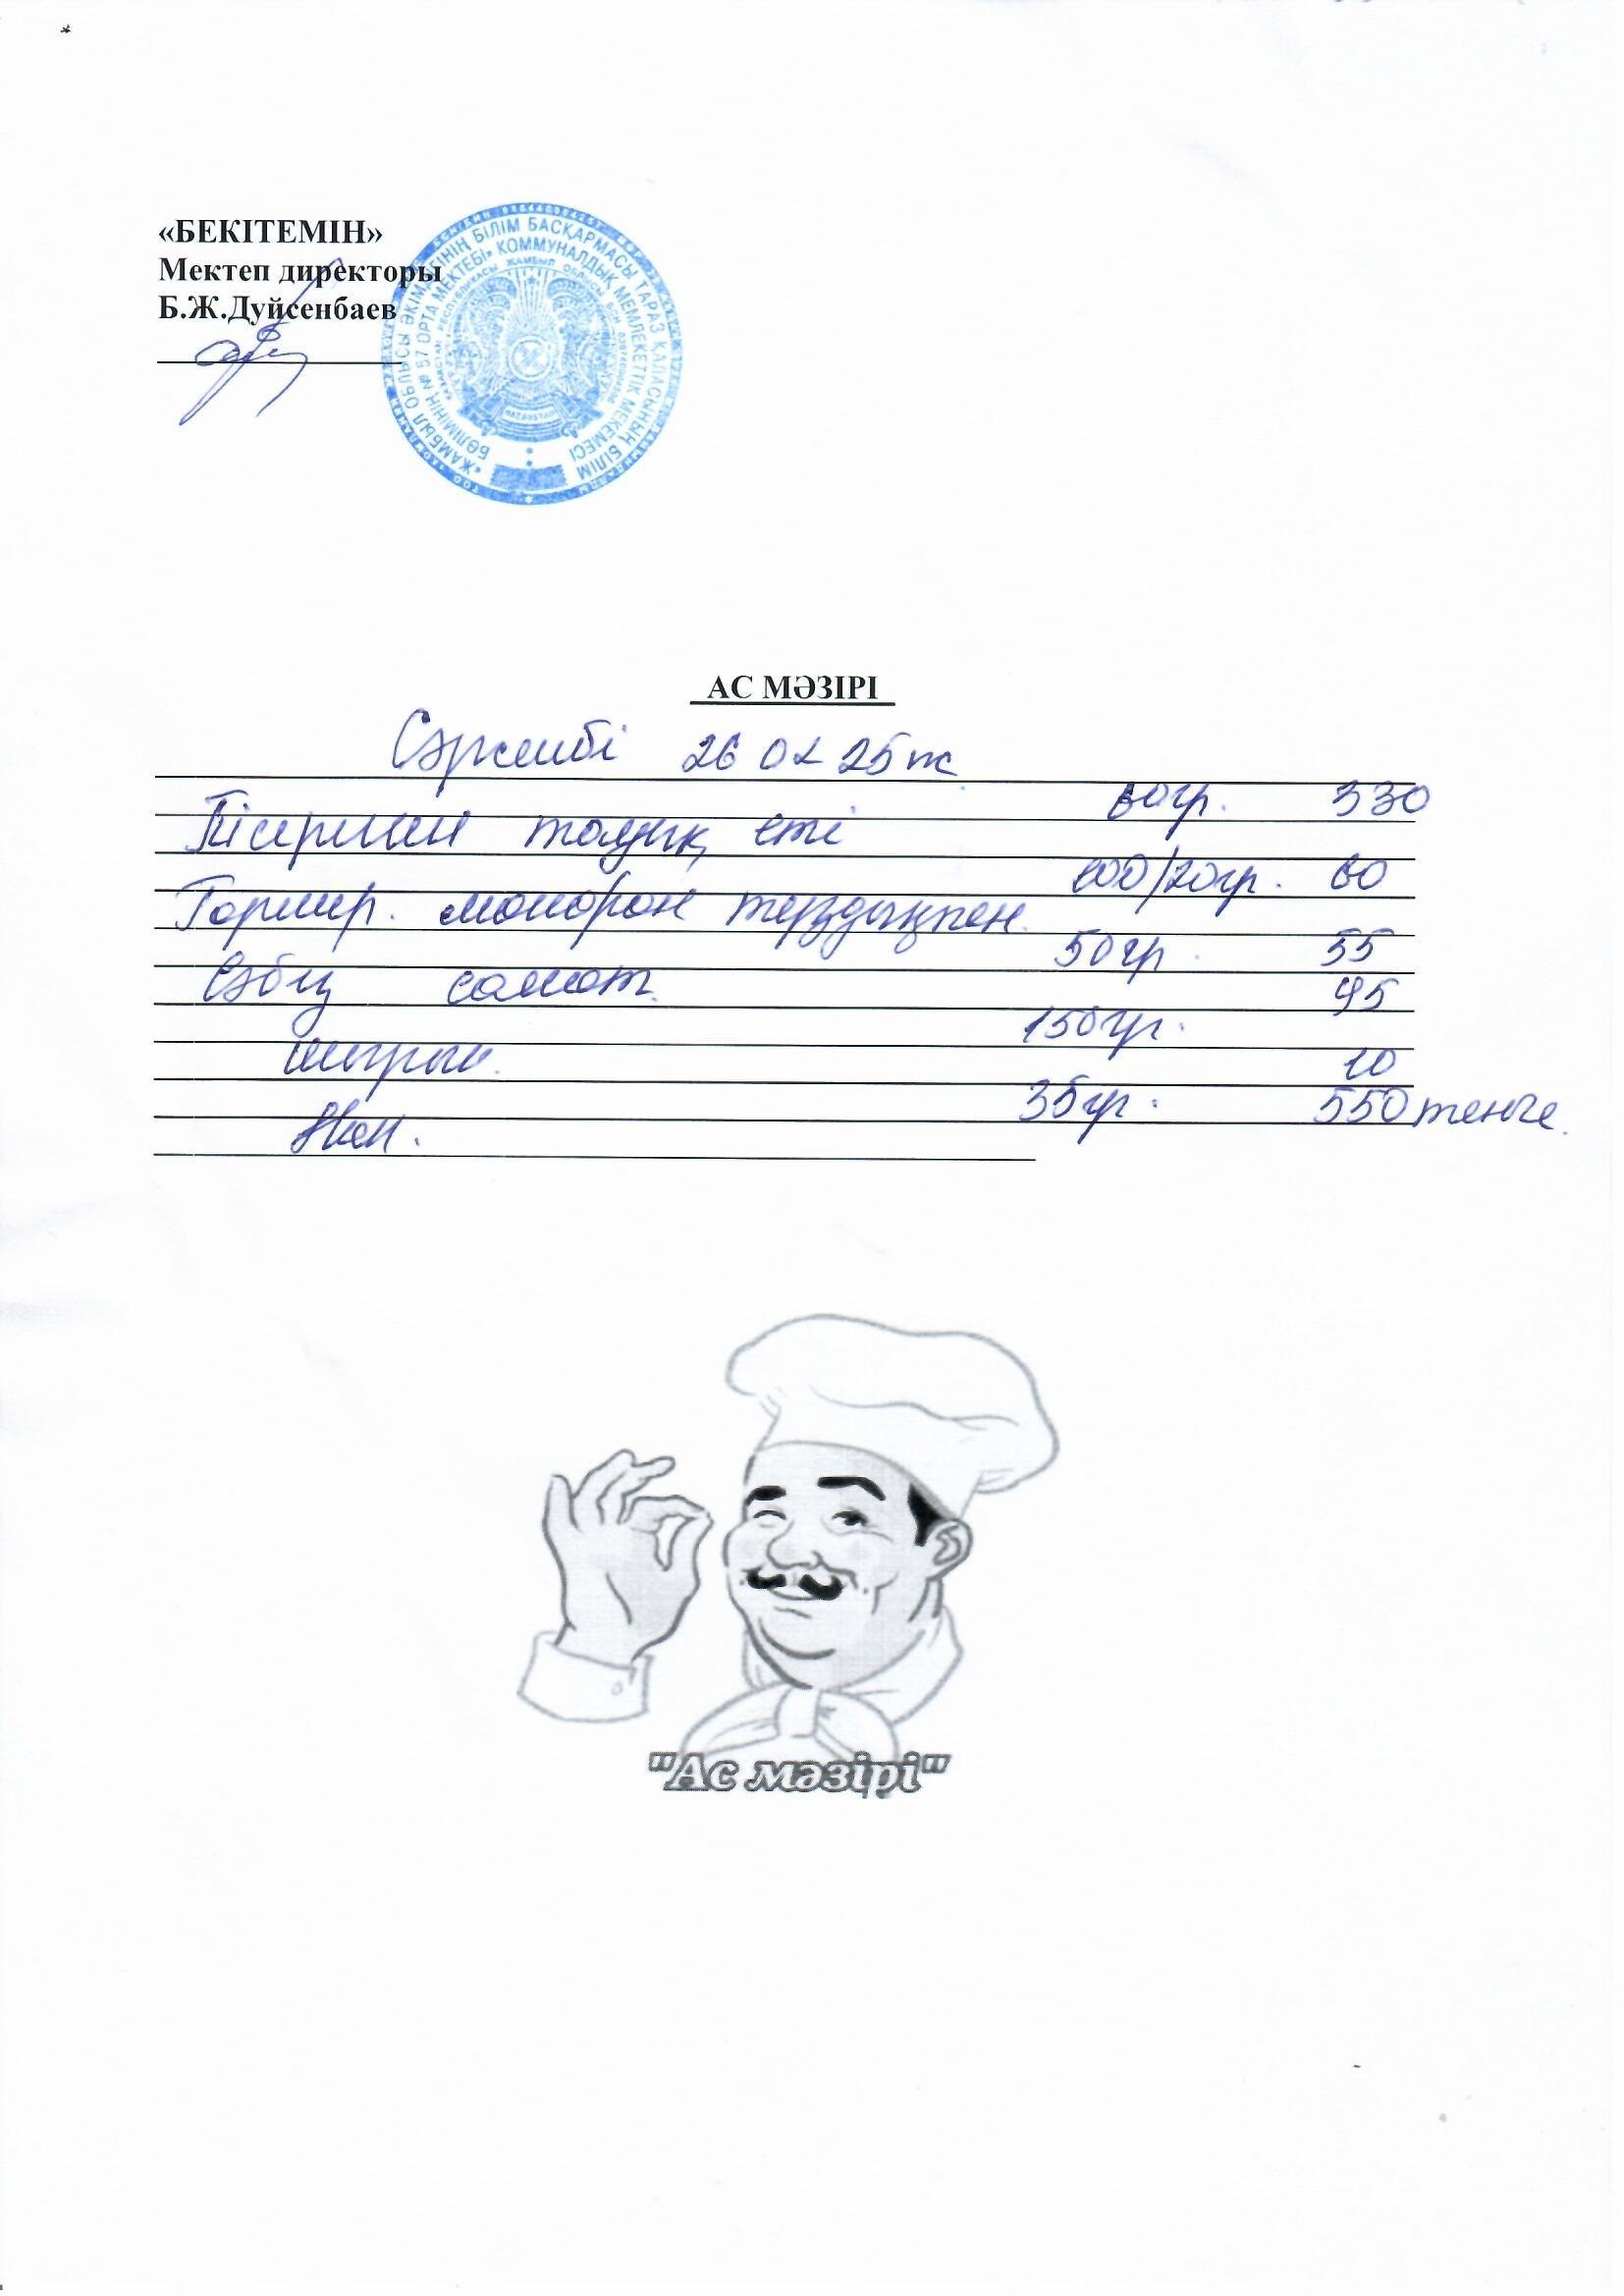 «БЕКІТЕМІН»
Мектеп директоры
Б.Ж.Дуйсенбаев
«ЖАМБЫЛ ОБЛЫСЫ ӘКІМДІГІНІҢ БІЛІМ БАСҚАРМАСЫ ТАРАЗ ҚАЛАСЫНЫҢ БІЛІМ
БӨЛІМІНІҢ № 57 ОРТА МЕКТЕБІ» КОММУНАЛДЫҚ МЕМЛЕКЕТТІК МЕКЕМЕСІ
АС МӘЗІРІ
Сәрсенбі 26 02 25ж
Пісірілген тауық еті 80гр. 330
Гарнир. макарон тұздықпен. 100/20гр. 60
Сәбіз салат. 50гр. 55
шырын. 150гр. 95
Нан. 35гр. 10
550 теңге.
"Ас мәзірі"